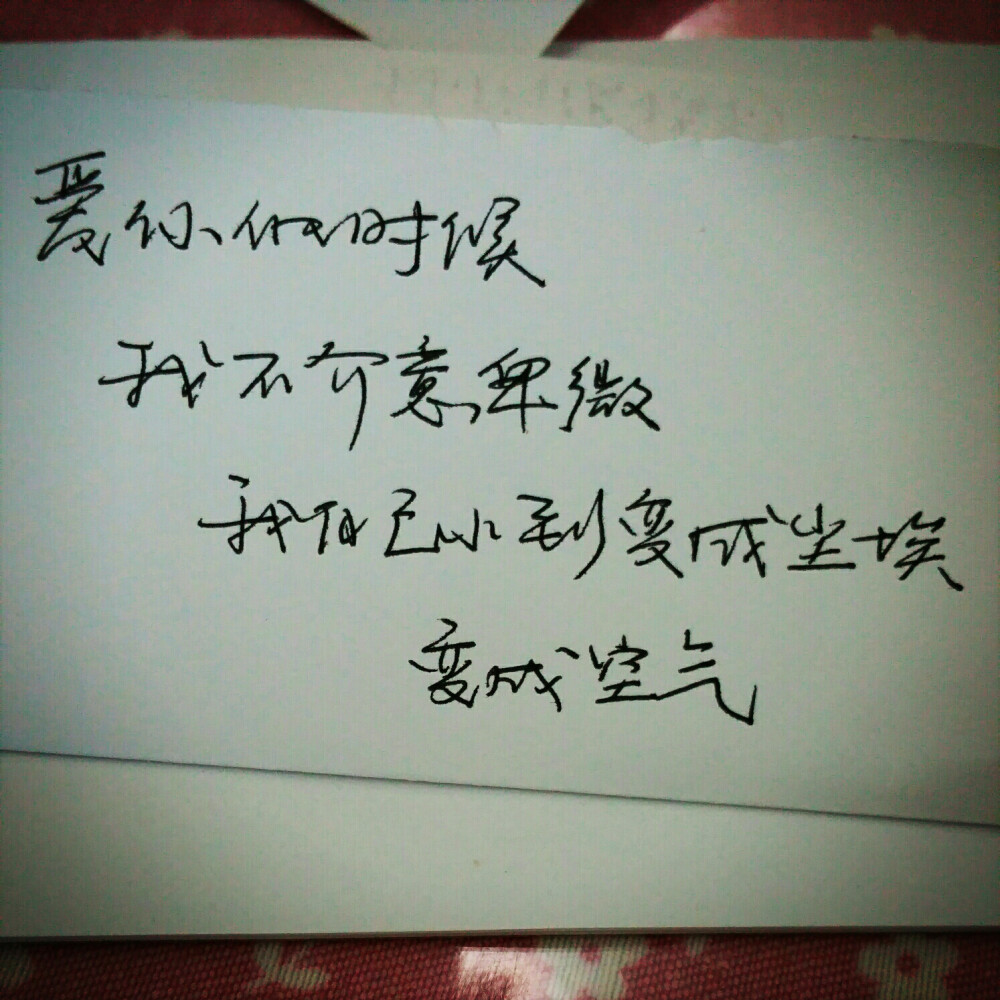 爱你的时候
我不介意卑微
我自己小到变成尘埃
变成空气